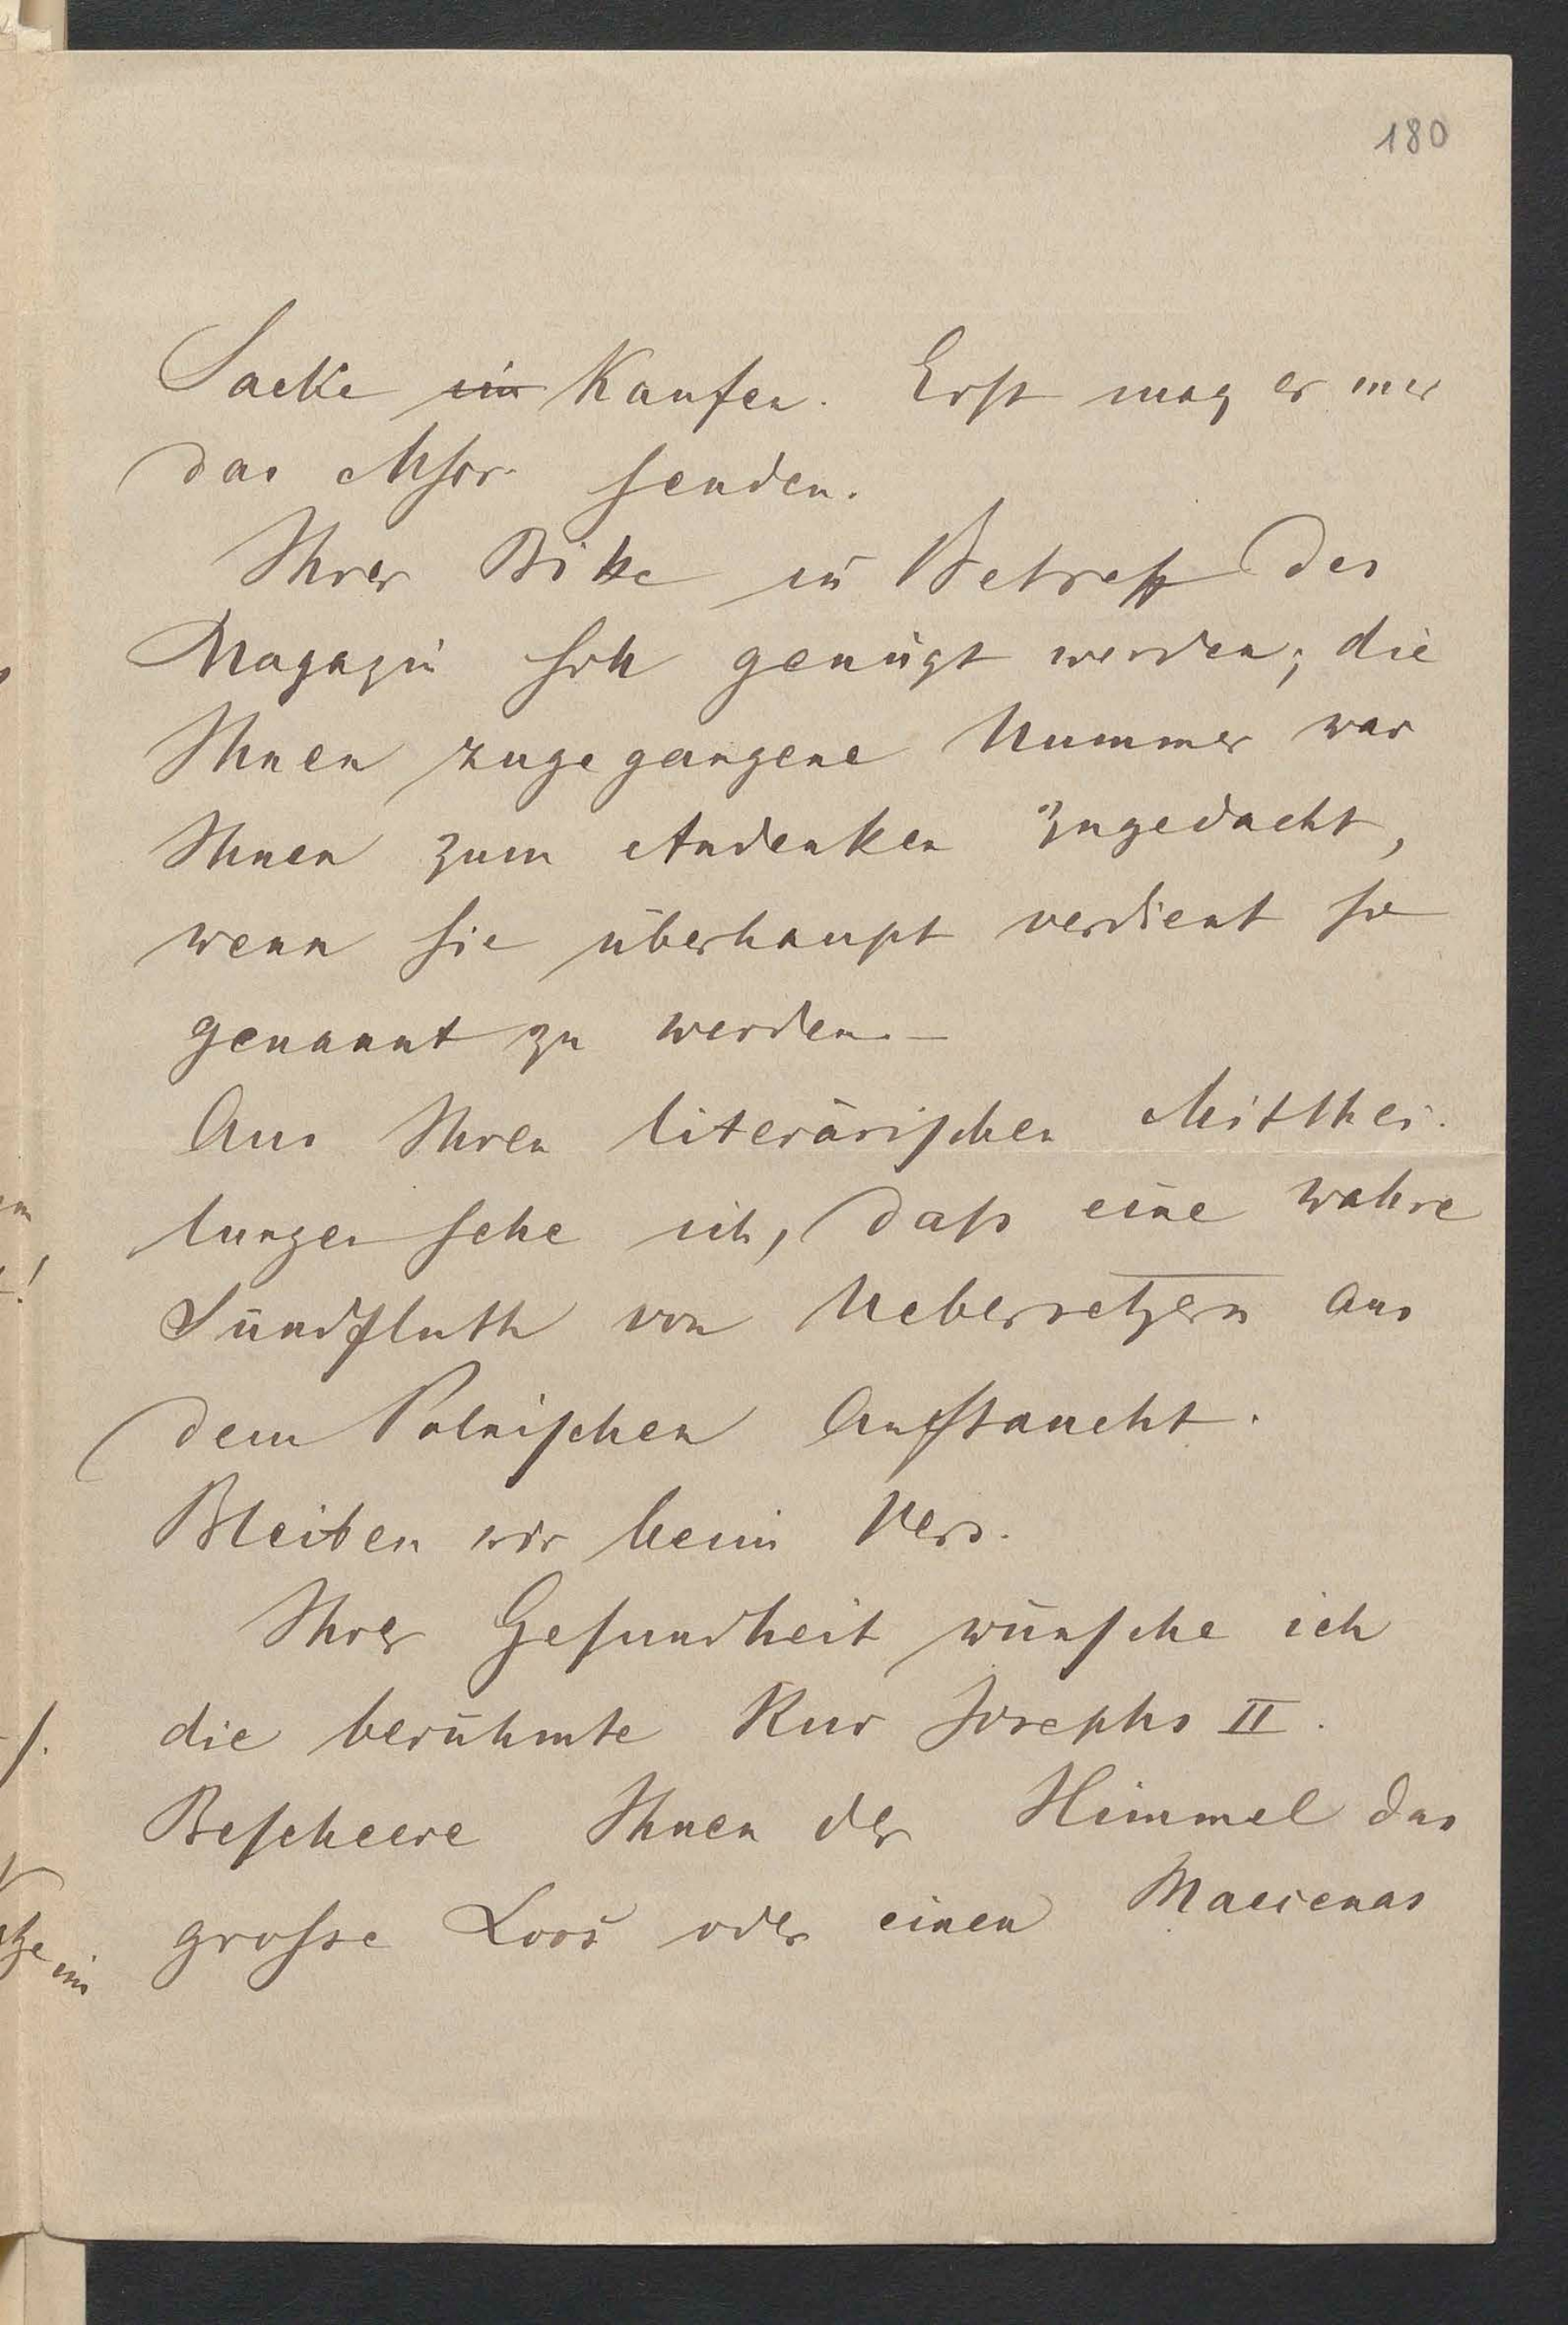 180
Sacke ein Kaufen. Erst mag er mir
das Mscr. senden.
Ihrer Bitte in Betreff des
Magazin soll genügt werden; die
Ihnen zugegangene Nummer war
Ihnen zum Andenken zugedacht,
wenn sie überhaupt verdient so
genannt zu werden. –
Aus Ihren literärischen Mitthei-
lungen sehe ich, daß eine wahre
Sündfluth von Uebersetzern aus
dem Polnischen auftaucht.
Bleiben wir beim Vers.
Ihrer Gesundheit wünsche ich
die berühmte Kur Josephs II.
Bescheere Ihnen der Himmel das
grosse Loos oder einen Maecenas